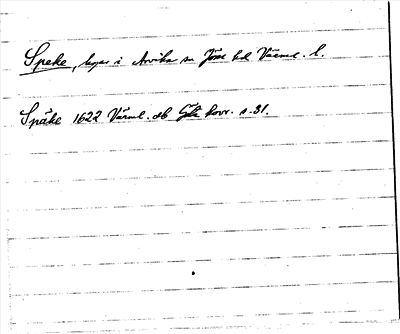 Speke, byar i Arvika sn Jösse hd Värml. l.
Späke 1622 Värml. ob Göta hovr. s. 31.